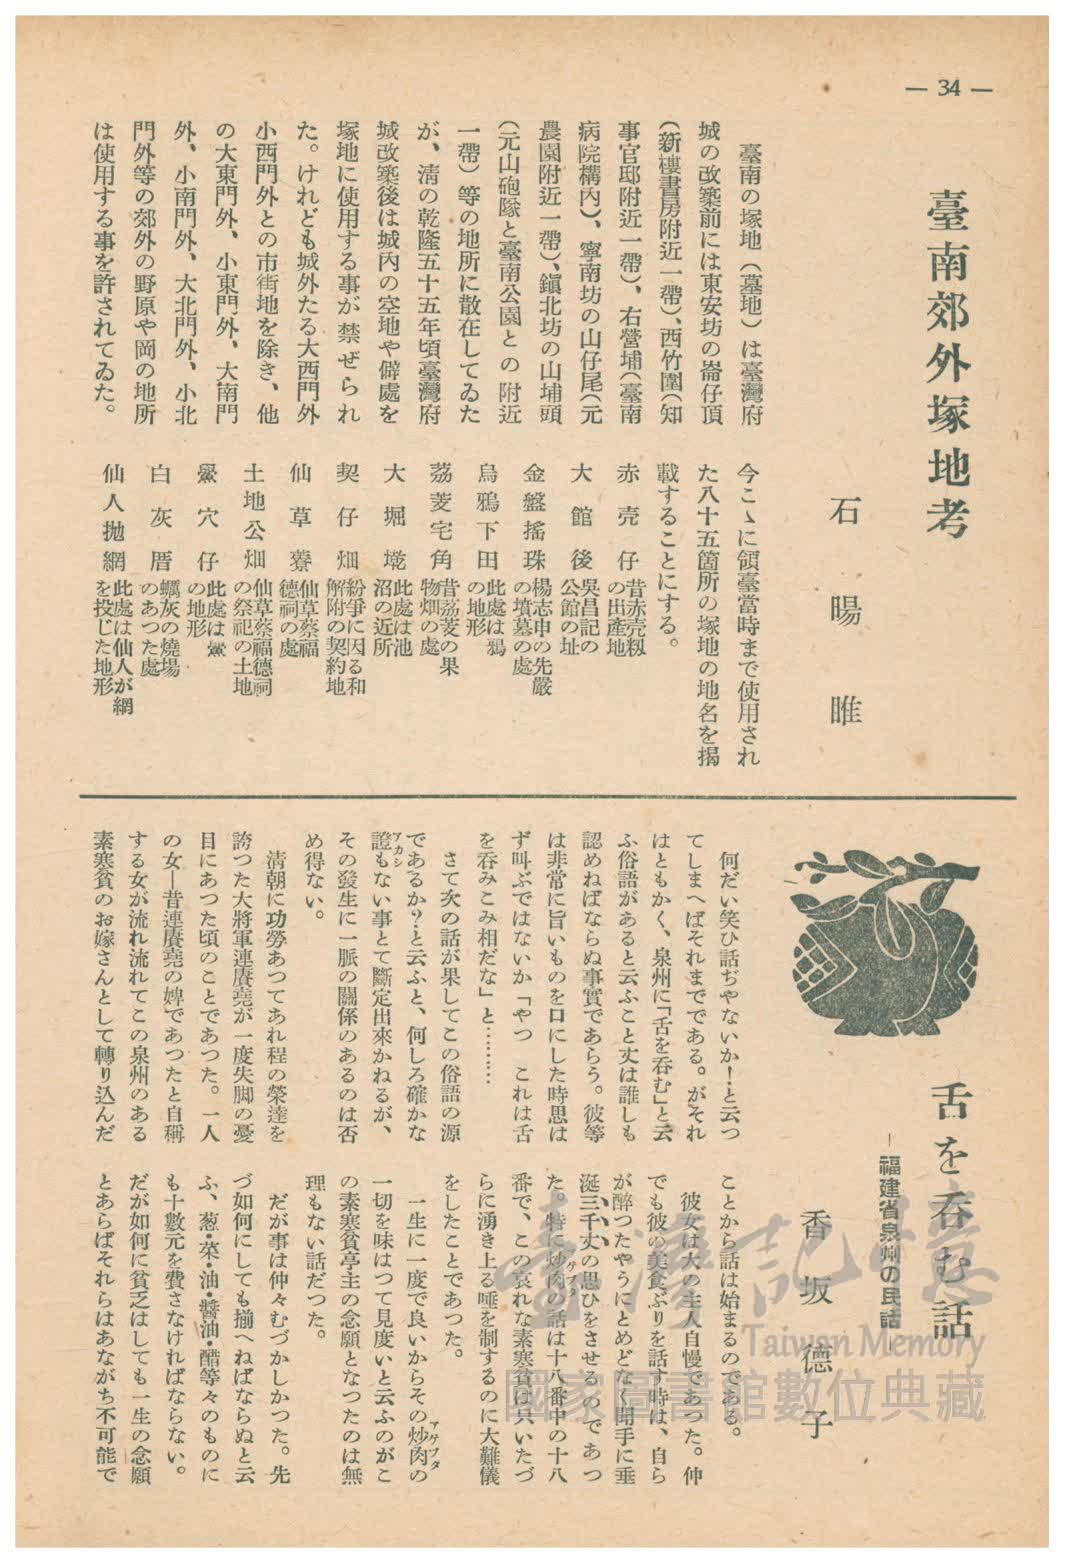 — 34 —
臺南郊外塚地考
石暘睢
臺南の塚地（墓地）は臺灣府
城の改築前には東安坊の崙仔頂
（新樓書房附近一帶）、西竹圍（知
事官邸附近一帶）、右營埔（臺南
病院構內）、寧南坊の山仔尾（元
農園附近一帶）、鎭北坊の山埔頭
（元山砲隊と臺南公園との附近
一帶）等の地所に散在してゐた
が、淸の乾隆五十五年頃臺灣府
城改築後は城內の空地や僻處を
塚地に使用する事が禁ぜられ
た。けれども城外たる大西門外
小西門外との市街地を除き、他
の大東門外、小東門外、大南門
外、小南門外、大北門外、小北
門外等の郊外の野原や岡の地所
は使用する事を許されてゐた。
今こゝに領臺當時まで使用され
た八十五箇所の塚地の地名を揭
載することにする。
赤売仔 昔赤売籾の出產地
大館後 吳昌記の公館の址
金盤搖珠 楊志申の先嚴の墳墓の處
烏鴉下田 此處は鴉の地形
荔菱宅角 昔荔菱の果物畑の處
大堀墘 此處は池沼の近所
契仔畑 紛爭に因る和解附の契約地
仙草藔 仙草藔福德祠の處
土地公畑 仙草藔福德祠の祭祀の土地
鱟穴仔 此處は鱟の地形
白灰厝 蠣灰の燒場のあつた處
仙人拋網 此處は仙人が網を投じた地形
舌を呑む話
—福建省泉州の民話—
香坂德子
何だい笑ひ話ぢやないか！と云つ
てしまへばそれまでである。がそれ
はともかく、泉州に「舌を呑む」と云
ふ俗語があると云ふこと丈は誰しも
認めねばならぬ事實であらう。彼等
は非常に旨いものを口にした時思は
ず叫ぶではないか「やつ　これは舌
を呑みこみ相だな」と………
さて次の話が果してこの俗語の源
であるか？と云ふと、何しろ確かな
證アカシもない事とて斷定出來かねるが、
その發生に一脈の關係のあるのは否
め得ない。
淸朝に功勞あつてあれ程の榮達を
誇つた大將軍連賡堯が一度失脚の憂
目にあつた頃のことであつた。一人
の女—昔連賡堯の婢であつたと自稱
する女が流れ流れてこの泉州のある
素寒貧のお嫁さんとして轉り込んだ
ことから話は始まるのである。
彼女は大の主人自慢であつた。仲
でも彼の美食ぶりを話す時は、自ら
が醉つたやうにとめどなく聞手に垂
涎三千丈の思ひをさせるのであつ
た。特に炒肉の話は十八番中の十八
番で、この哀れな素寒貧は只いたづ
らに湧き上る唾を制するのに大難儀
をしたことであつた。
一生に一度で良いからその炒肉の
一切を味はつて見度いと云ふのがこ
の素寒貧亭主の念願となつたのは無
理もない話だつた。
だが事は仲々むづかしかつた。先
づ如何にしても揃へねばならぬと云
ふ、葱・菜・油・醬油・醋等々のものに
も十數元を費さなければならない。
だが如何に貧乏はしても一生の念願
とあらばそれらはあながち不可能で
臺灣記憶
Taiwan Memory
國家圖書館數位典藏